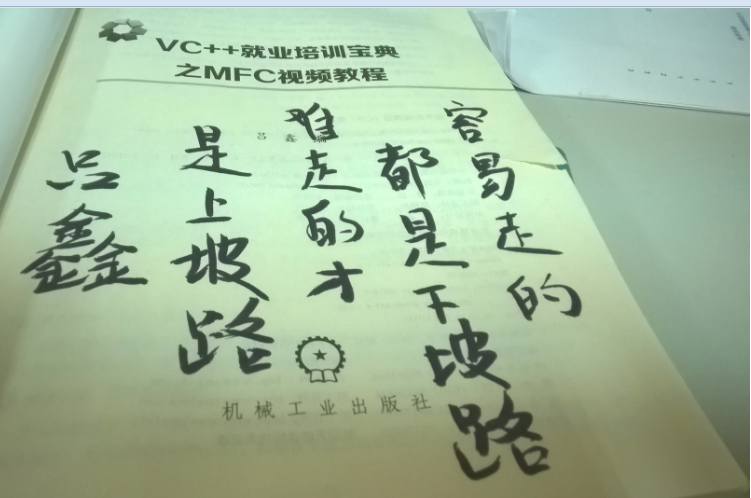 VC++就业培训宝典
之MFC视频教程
吕 鑫 编
容易走的
都是下坡路
难走的才
是上坡路
吕鑫
机械工业出版社